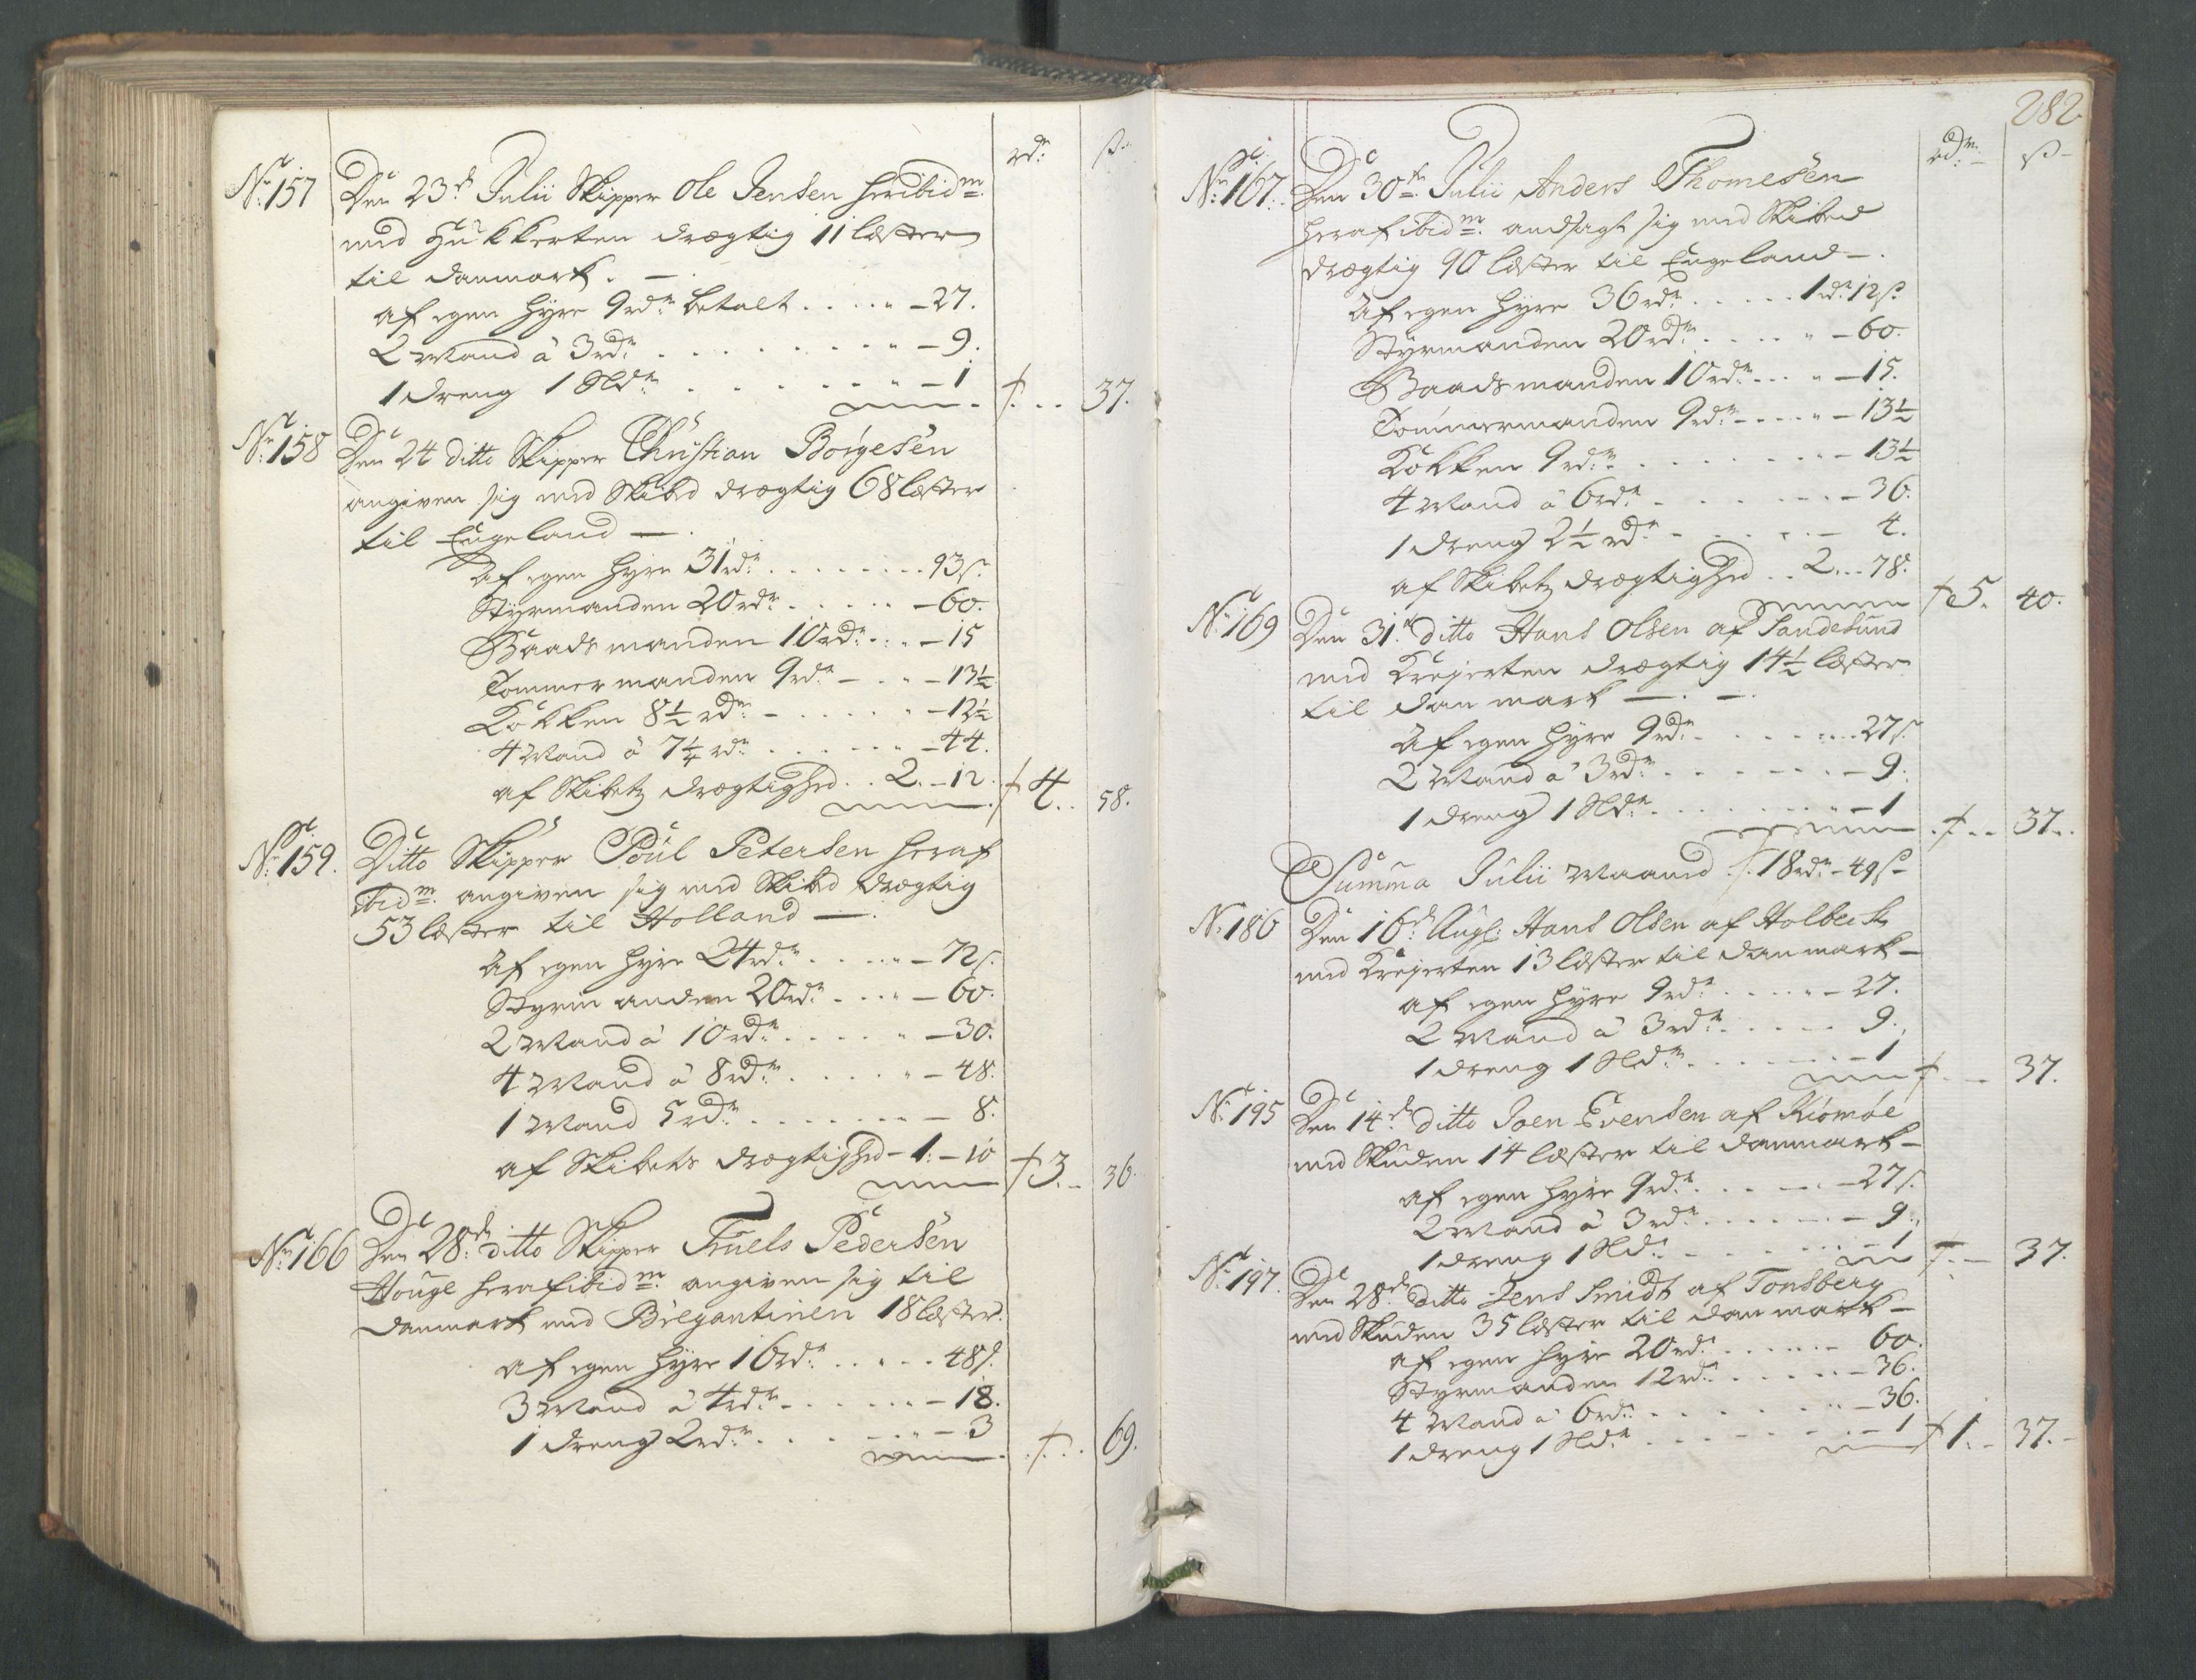 rdr: ß.
No 157 Den 23de Julii Skipper Ole Jensen heribidm
med Hukkerten drægtig 11 læster
til Danmark. —
af egen hyre 9 rdr betalt .. .. „ – 27.
2 Mand á 3 rdr . . . . . . „ – 9.
1 dreng 1 Sldr . . . . . . „ – 1 ⨍ . .. 37.
No 158 Den 24 ditto Skipper Christian Börgesen
angiven sig med Skibed drægtig 68 læster
til Engeland — .
Af egen hyre 31 rdr . . . . . . 93 ß.
Styrmanden 20 rdr . . . . . – 60.
Baadsmanden 10 rdr . . . – 15
Tommermanden 9 rdr – . . „ – 13½
Kokken 8½ rdr – . . . . „ – 12½
4 Mand á 7¼ rdr . . . . . . – 44.
af Skibetz drægtighed . . 2. – 12. ⨍ 4 .. 58.
No 159. Ditto Skipper Poul Petersen heraf
ibidm angiven sig med Skibed drægtig
53 læster til Holland — .
Af egen hyre 24 rdr . . . . . – 72 ß.
Styrmanden 20 rdr . . . „ – 60.
2 Mand á 10 rdr . . . . . „ – 30.
4 Mand á 8 rdr . . . . . „ – 48.
1 Mand 5 rdr . . . . . . . . – 8.
af Skibets drægtighed – 1. – 10 ⨍ 3. – 36.
No 166 Den 28de ditto Skipper Truels Pedersen
Houge herafibidm angiven sig til
Danmark med Bregantinen 18 læster.
af egen hyre 16 rdr . . . . . 48 ß.
3 Mand á 4 rdr – . . . . . – 18.
1 dreng 2 rdr . . . – . . – 3 . ⨍ . . 69.
282
rdr: – ß –
No 167. Den 30te Julii Anders Thomesen
herafibidm andsagt sig med Skibed
drægtig 90 læster til Engeland – .
Af egen hyre 36 rdr . . . . . 1 rdr 12 ß.
Styrmanden 20 rdr . . . . „ – 60.
Baadsmanden 10 rdr . . . „ – 15.
Tommermanden 9 rdr – – . . „ – 13½
Kokken 9 rdr . . . . . . . – 13½
4 Mand á 6 rdr . . . . . . – 36.
1 dreng 2½ rdr – . . . . – 4.
af Skibetz drægtighed . . 2 . . . 78. ⨍ 5. 40.
No 169 Den 31te ditto Hans Olsen af Sandesund
med Krejerten drægtig 14½ læster
til Danmark — . – .
Af egen hyre 9 rdr – . . . . . . . 27 ß.
2 Mand á 3 rdr . . . . . . – 9.
1 dreng 1 Sldr . . . . . . „ – 1 . ⨍ . – 37. .
Summa Julii Maaned ⨍. 18 rdr – 49 ß –
No 186 Den 16de Augs: Hans Olsen af Holbeck
med Krejerten 13 læster til Danmark –
af egen hyre 9 rdr . . . . . – 27.
2 Mand á 3 rdr . . . . . . 9.
1 dreng 1 Sldr . . . . . . – 1 ⨍ . – 37.
No 195 Den 14de ditto Joen Evensen af Kiömöe
med Skuden 14 læster til Danmark –
af egen hyre 9 rdr . . . . . – 27 ß.
2 Mand á 3 rdr . . . . . . – 9.
1 dreng 1 Sldr . . . . . . – 1 ⨍ . – 37.
No 197. Den 28de ditto Jens Smidt af Tonsberg
med Skuden 35 læster til Danmark –
af egen hyre 20 rdr . . . . . – 60.
Styrmanden 12 rdr . . . . . – 36.
4 Mand á 6 rdr . . . . . . „ – 36.
1 dreng 1 Sldr . . . . . . – 1 ⨍ 1. – 37. –